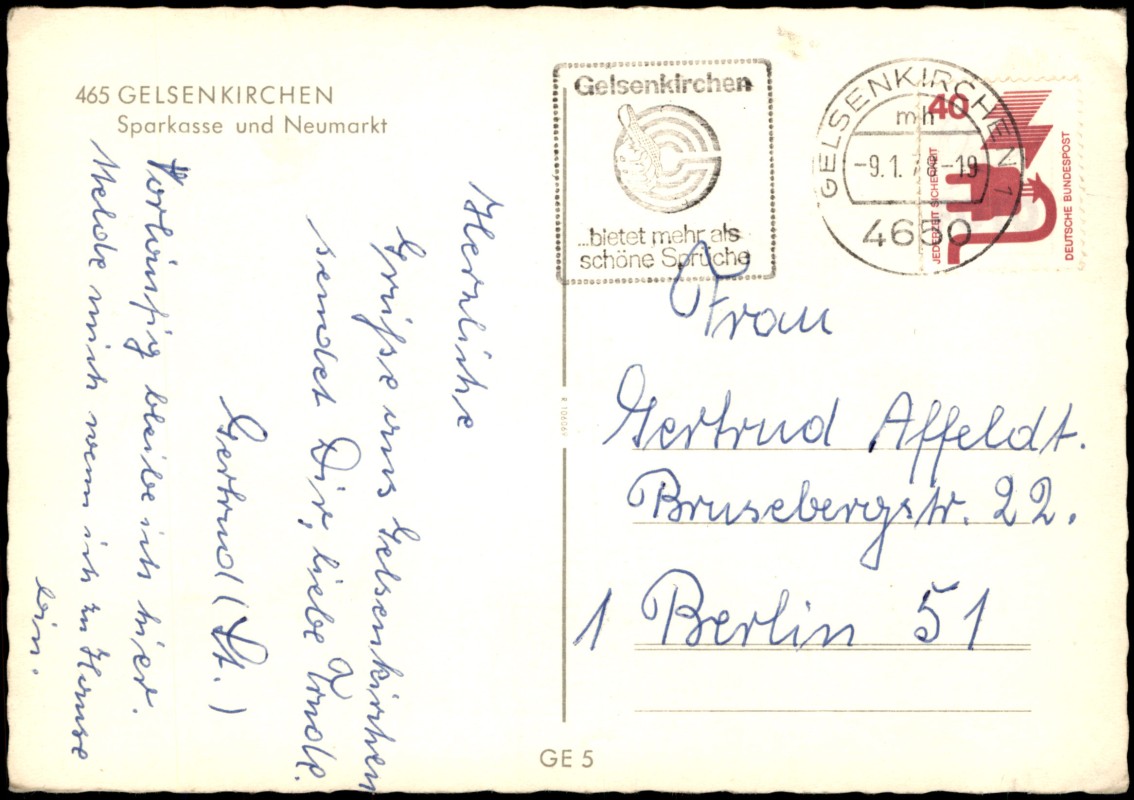 465 GELSENKIRCHEN
Sparkasse und Neumarkt
Herzliche
Grüße aus Gelsenkirchen
sendet Dir, liebe Trudl.
Gertrud (St.)
Vorläufig bleibe ich hier.
Melde mich wenn ich zu Hause
bin.
Gelsenkirchen
...bietet mehr als
schöne Sprüche
GELSENKIRCHEN 1
mh
-9.1. -19
4650
40
JEDERZEIT SICHERHEIT
DEUTSCHE BUNDESPOST
Frau
Gertrud Affeldt.
Brusebergstr. 22.
1 Berlin 51
GE 5